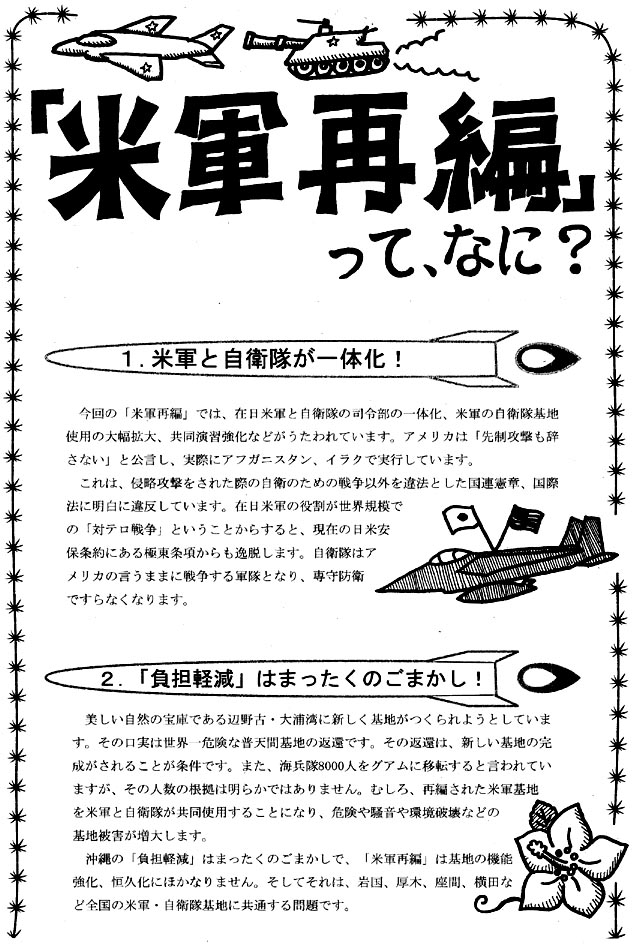 「米軍再編」
って、なに？
1．米軍と自衛隊が一体化！
今回の「米軍再編」では、在日米軍と自衛隊の司令部の一体化、米軍の自衛隊基地
使用の大幅拡大、共同演習強化などがうたわれています。アメリカは「先制攻撃も辞
さない」と公言し、実際にアフガニスタン、イラクで実行しています。
これは、侵略攻撃をされた際の自衛のための戦争以外を違法とした国連憲章、国際
法に明白に違反しています。在日米軍の役割が世界規模で
の「対テロ戦争」ということからすると、現在の日米安
保条約にある極東条項からも逸脱します。自衛隊はア
メリカの言うままに戦争する軍隊となり、専守防衛
ですらなくなります。
2．「負担軽減」はまったくのごまかし！
美しい自然の宝庫である辺野古・大浦湾に新しく基地がつくられようとしていま
す。その口実は世界一危険な普天間基地の返還です。その返還は、新しい基地の完
成がされることが条件です。また、海兵隊8000人をグアムに移転すると言われてい
ますが、その人数の根拠は明らかではありません。むしろ、再編された米軍基地
を米軍と自衛隊が共同使用することになり、危険や騒音や環境破壊などの
基地被害が増大します。
沖縄の「負担軽減」はまったくのごまかしで、「米軍再編」は基地の機能
強化、恒久化にほかなりません。そしてそれは、岩国、厚木、座間、横田な
ど全国の米軍・自衛隊基地に共通する問題です。